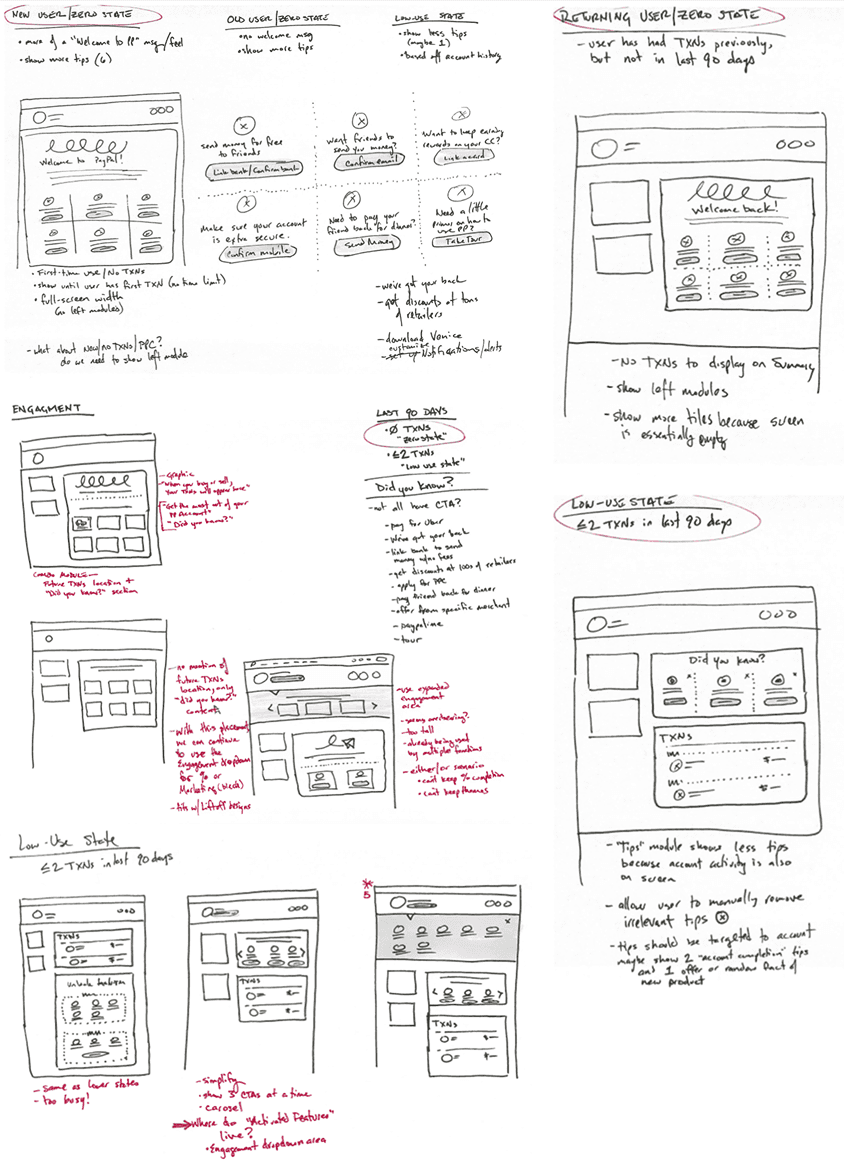 NEW USER/ZERO STATE
• more of a "Welcome to PP" msg/feel
• show more tips (6)
OLD USER/ZERO STATE
• no welcome msg
• show more tips
LOW-USE STATE
• show less tips
(maybe 1)
• based off account history
Welcome to PayPal!
send money for free
to friends
Link bank/Confirm bank
Want friends to
send you money?
Confirm email
Want to keep earning
rewards on your CC?
Link a card
Make sure your account
is extra secure.
Confirm mobile
Need to pay your
friend back for dinner?
Send Money
Need a little
primer on how to
use PP?
Take Tour
• First-time use/No TXNs
• show until user has first TXN (no time limit)
• full-screen width
(no left modules)
- what about New/no TXNs/PPC?
do we need to show left module
- we've got your back
- get discounts at tons
of retailers
- download Venice
customize
- set up Notifications/alerts
RETURNING USER/ZERO STATE
- user has had TXNs previously,
but not in last 90 days
Welcome back!
- No TXNs to display on Summary
- show left modules
- show more tiles because screen
is essentially empty
ENGAGMENT
- Graphic
- "When you buy or sell,
your TXNs will appear here"
- "Get the most out of your
PP Account"
"Did you know?"
COMBO MODULE -
Future TXNs location +
"Did you know?" section
LAST 90 DAYS
• Ø TXNs
"zero state"
• ≤2 TXNs
"Low use state"
Did you know?
- not all have CTA?
- pay for Uber
- We've got your back
- link bank to send
money w/no fees
- get discounts at 100s of retailers
- apply for PPC
- pay friend back for dinner
- offer from specific merchant
- tour
- no mention of
future TXNs
location, only
"did you know?"
content
- with this placement,
we can continue
to use the
Engagement dropdown
for % or
Marketing (block)
- fits w/ Liftoff designs
- use expanded
engagement
area
- seems overbearing?
- too tall
- already being used
by multiple functions
- either/or scenario
• can't keep % completion
• can't keep themes
LOW-USE STATE
≤2 TXNs in last 90 days
Did you know?
TXNs
- "Tips" module shows less tips
because account activity is also
on screen
- allow user to manually remove
irrelevant tips ⓧ
- tips should be targeted to account
maybe show 2 "account completion" tips
and 1 offer or random fact of
new product
Low-Use State
≤2 TXNs in last 90 days
TXNs
- same as lower states
- too busy!
TXNs
- simplify
- show 3 CTAs at a time
- carosel
Where do "Activated Features"
live?
• Engagement dropdown area
5
TXNs